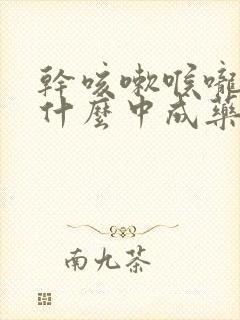 幹咳嗽喉嚨
什麼中成藥
南九茶